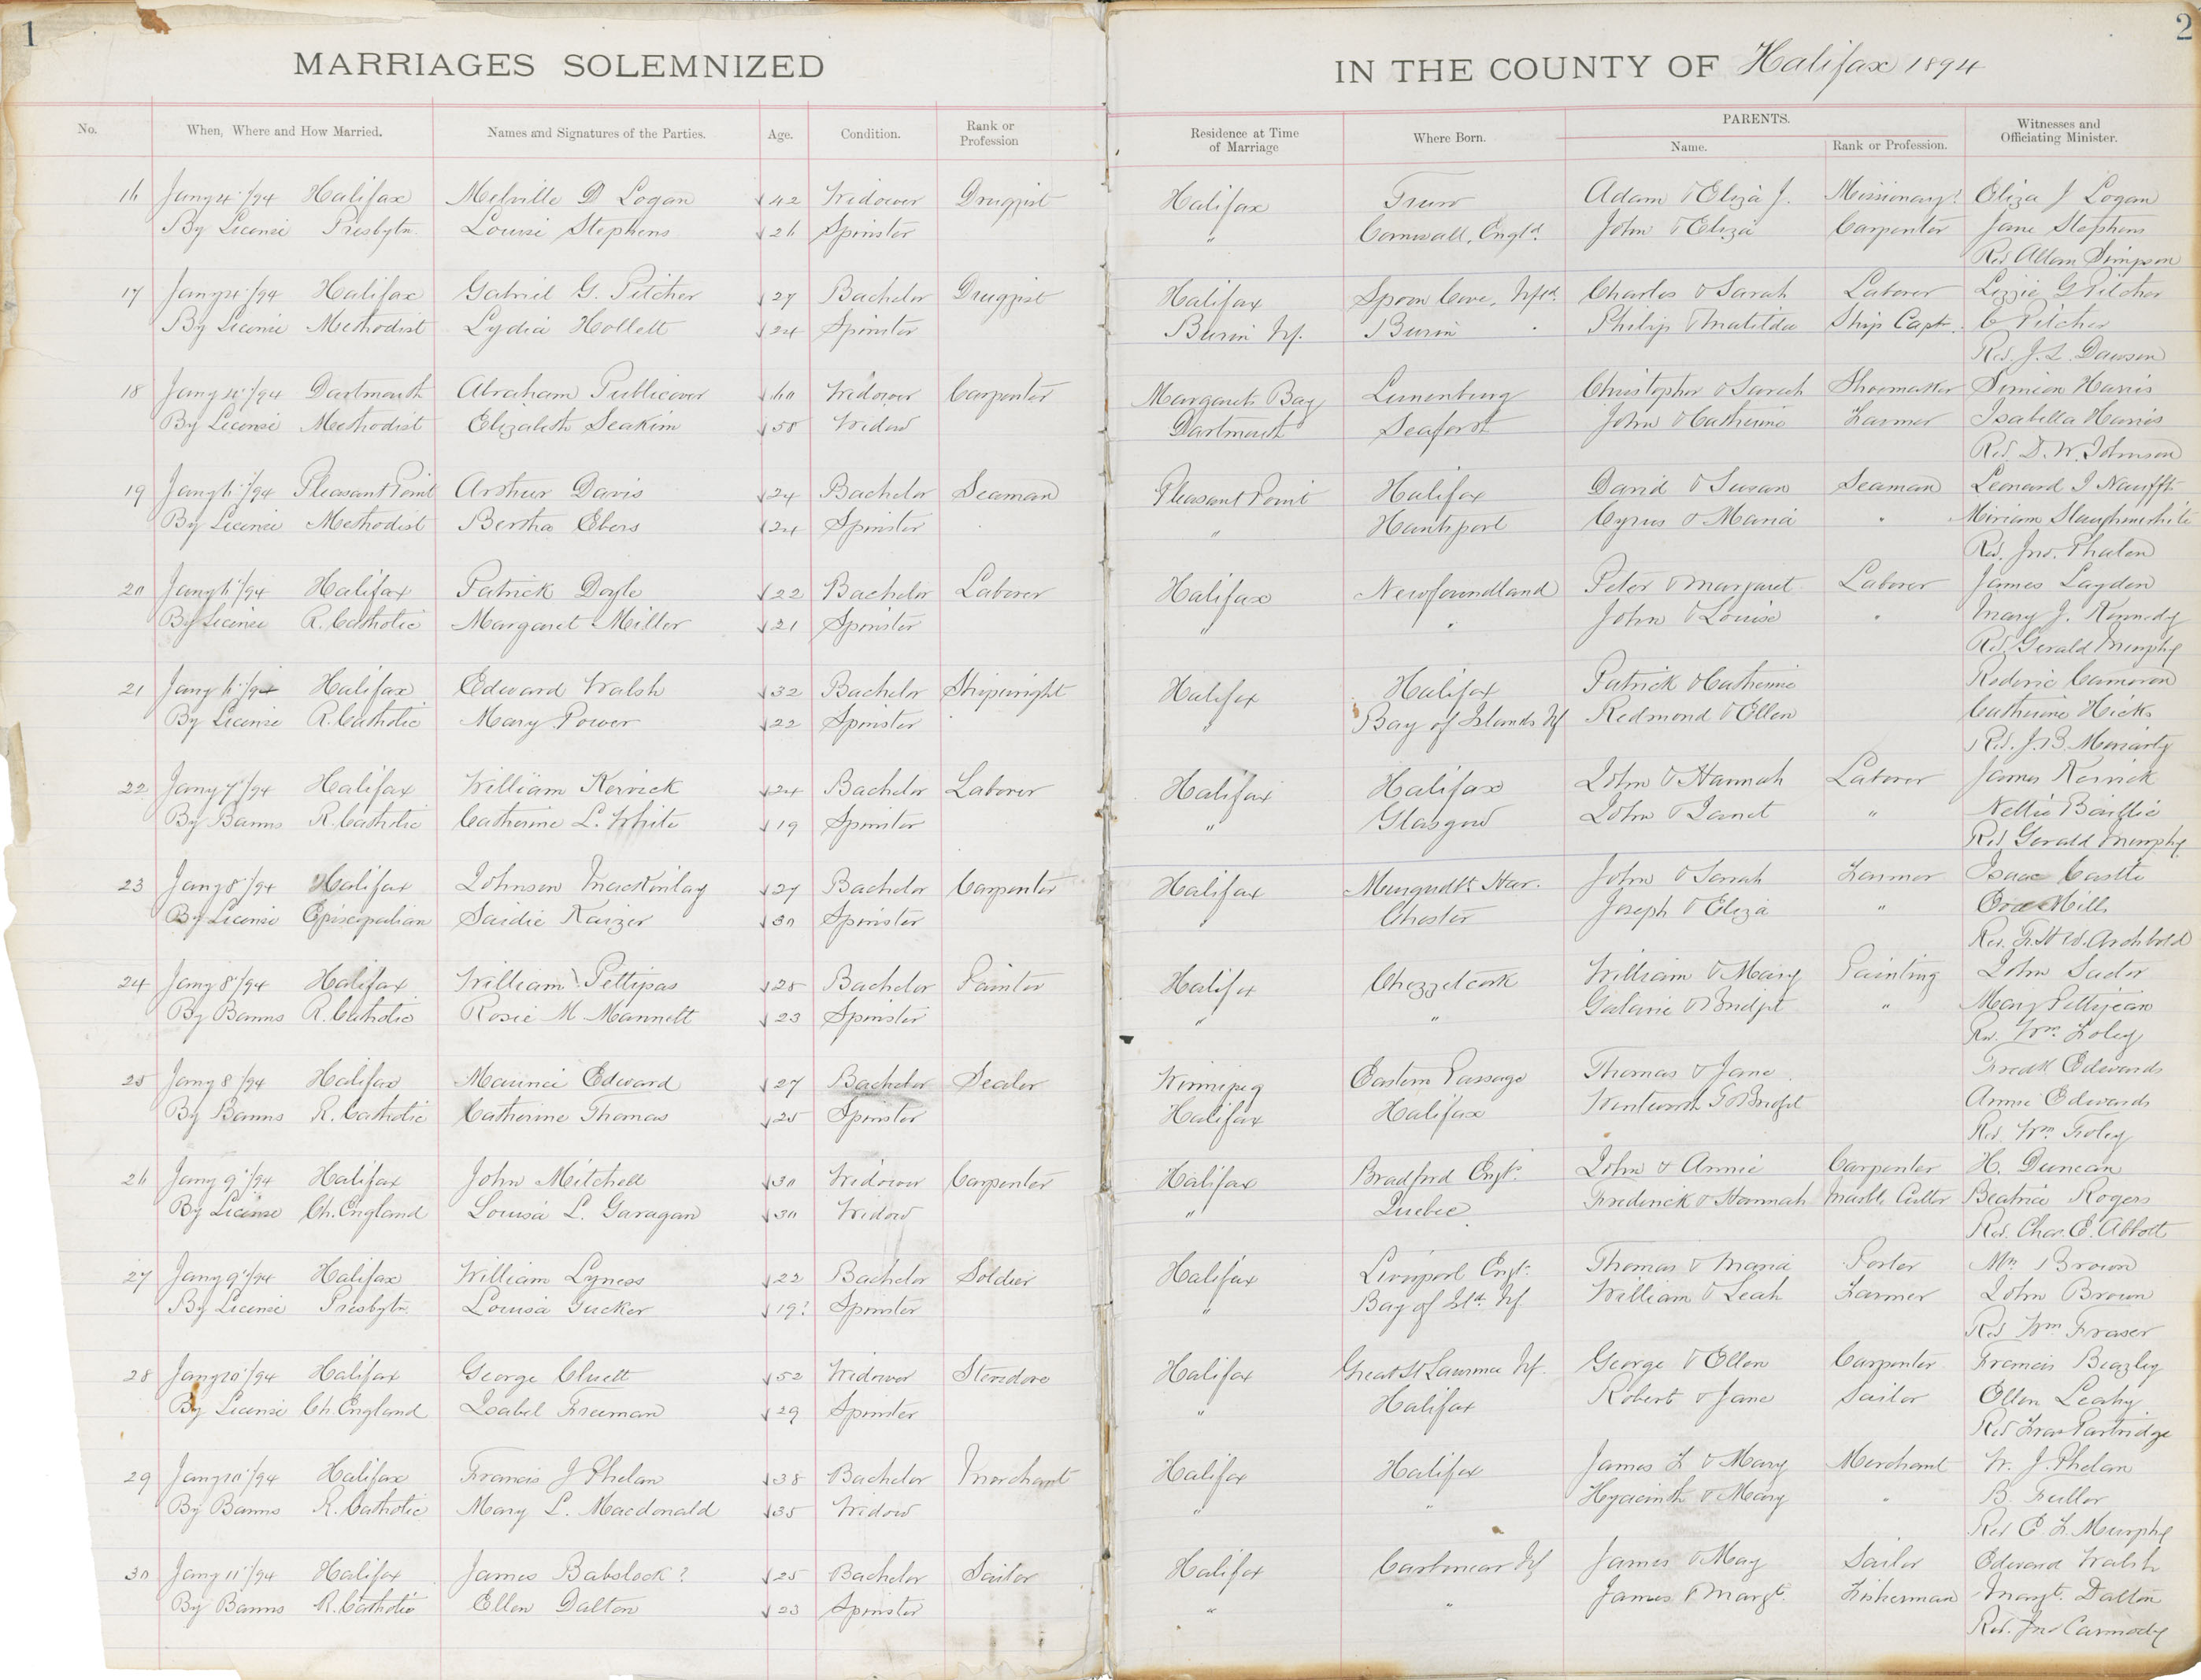 1
2
MARRIAGES SOLEMNIZED IN THE COUNTY OF Halifax 1894
No. When, Where and How Married. Names and Signatures of the Parties. Age. Condition. Rank or Profession Residence at Time of Marriage Where Born. PARENTS. Name. Rank or Profession. Witnesses and Officiating Minister.
16 Jany 4"/94 Halifax Melville D Logan 42 Widower Druggist Halifax Truro Adam & Eliza J. Missionary? Eliza J Logan
By License Presbytn. Louise Stephens 26 Spinster " Cornwall, Engld. John & Eliza Carpenter Jane Stephens
Rev Allan Simpson
17 Jany 4"/94 Halifax Gabriel G. Pitcher 27 Bachelor Druggist Halifax Spoon Cove, Nfld. Charles & Sarah Laborer Lizzie G Pitcher
By License Methodist Lydia Hollett 24 Spinster Burin Nf. Burin Philip & Matilda Ship Capt. C Pitcher
Rev. J. L. Dawson
18 Jany 4"/94 Dartmouth Abraham Publicover 60 Widower Carpenter Margarets Bay Lunenburg Christopher & Sarah Shoemaker Simeon Harris
By License Methodist Elizabeth Seakim 58 Widow Dartmouth Seaforth John & Catherine Farmer Isabella Harris
Rev. D. W. Johnson
19 Jany 6"/94 Pleasant Point Arthur Davis 24 Bachelor Seaman Pleasant Point Halifax David & Susan Seaman Leonard I Naufft
By License Methodist Bertha Ebers 24 Spinster " Hantsport Cyrus & Maria " Miriam Slaughenwhite
Rev. Jno. Phalen
20 Jany 6"/94 Halifax Patrick Doyle 22 Bachelor Laborer Halifax Newfoundland Peter & Margaret Laborer James Layden
By License R. Catholic Margaret Miller 21 Spinster " " John & Louise " Mary J. Kennedy
Rev Gerald Murphy
21 Jany 6"/94 Halifax Edward Walsh 32 Bachelor Shipwright Halifax Halifax Patrick & Catherine Roderic Cameron
By License R. Catholic Mary Power 22 Spinster " Bay of Islands Nf Redmond & Ellen Catherine Hicks
Rev. J. B. Moriarty
22 Jany 7"/94 Halifax William Kervick 24 Bachelor Laborer Halifax Halifax John & Hannah Laborer James Kervick
By Banns R. Catholic Catherine L. White 19 Spinster " Glasgow John & Janet " Nellie Baillie
Rev Gerald Murphy
23 Jany 8"/94 Halifax Johnson MacKinlay 27 Bachelor Carpenter Halifax Musqudbt Har. John & Sarah Farmer Isaac Castle
By License Episcopalian Saidie Kaizer 30 Spinster " Chester Joseph & Eliza " Ora Mills
Rev. F. H W. Archbold
24 Jany 8"/94 Halifax William Pettipas 25 Bachelor Painter Halifax Chezzetcook William & Mary Painting John Sutor
By Banns R. Catholic Rosie M Mannett 23 Spinster " " & Bridget " Mary Pettijean
Rev. Wm. Foley
25 Jany 8"/94 Halifax Maurice Edward 27 Bachelor Sealer Winnipeg Eastern Passage Thomas & Jane Fredk Edwards
By Banns R. Catholic Catherine Thomas 25 Spinster Halifax Halifax Wentworth & Bridget Annie Edwards
Rev. Wm. Foley
26 Jany 9"/94 Halifax John Mitchell 30 Widower Carpenter Halifax Bradford Engd. John & Annie Carpenter H. Duncan
By License Ch. England Louisa L. Garagan 30 Widow " Quebec Frederick & Hannah Marble Cutter Beatrice Rogers
Rev. Chas. E. Abbott
27 Jany 9"/94 Halifax William Lyness 22 Bachelor Soldier Halifax Liverpool Engd. Thomas & Maria Porter Mrs Brown
By License Presbytn. Louisa Tucker 19? Spinster " Bay of Isld. Nf William & Leah Farmer John Brown
Rev Wm Fraser
28 Jany 10"/94 Halifax George Cluett 52 Widower Stevedore Halifax Great St Lawrence Nf. George & Ellen Carpenter Francis Beazley
By License Ch. England Isabel Freeman 29 Spinster " Halifax Robert & Jane Sailor Ellen Leahy
Rev Fras Partridge
29 Jany 10"/94 Halifax Francis J Phelan 38 Bachelor Merchant Halifax Halifax James F & Mary Merchant W. J. Phelan
By Banns R. Catholic Mary L. Macdonald 35 Widow " " Hyacinth & Mary " B. Fuller
Rev E. F. Murphy
30 Jany 11"/94 Halifax James Babslock? 25 Bachelor Sailor Halifax Carbonear Nf James & May Sailor Edward Walsh
By Banns R. Catholic Ellen Dalton 23 Spinster " " James & Margt. Fisherman Margt. Dalton
Rev. Jno Carmody